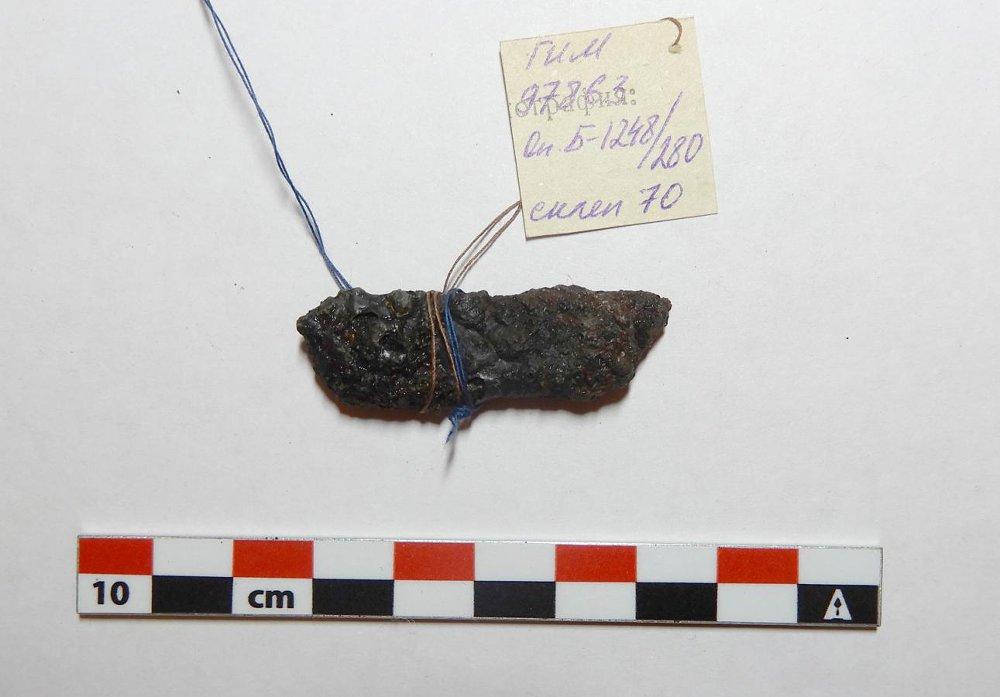 ГИМ
97863
ография:
Оп. Б-1248/280
склеп 70
10 cm